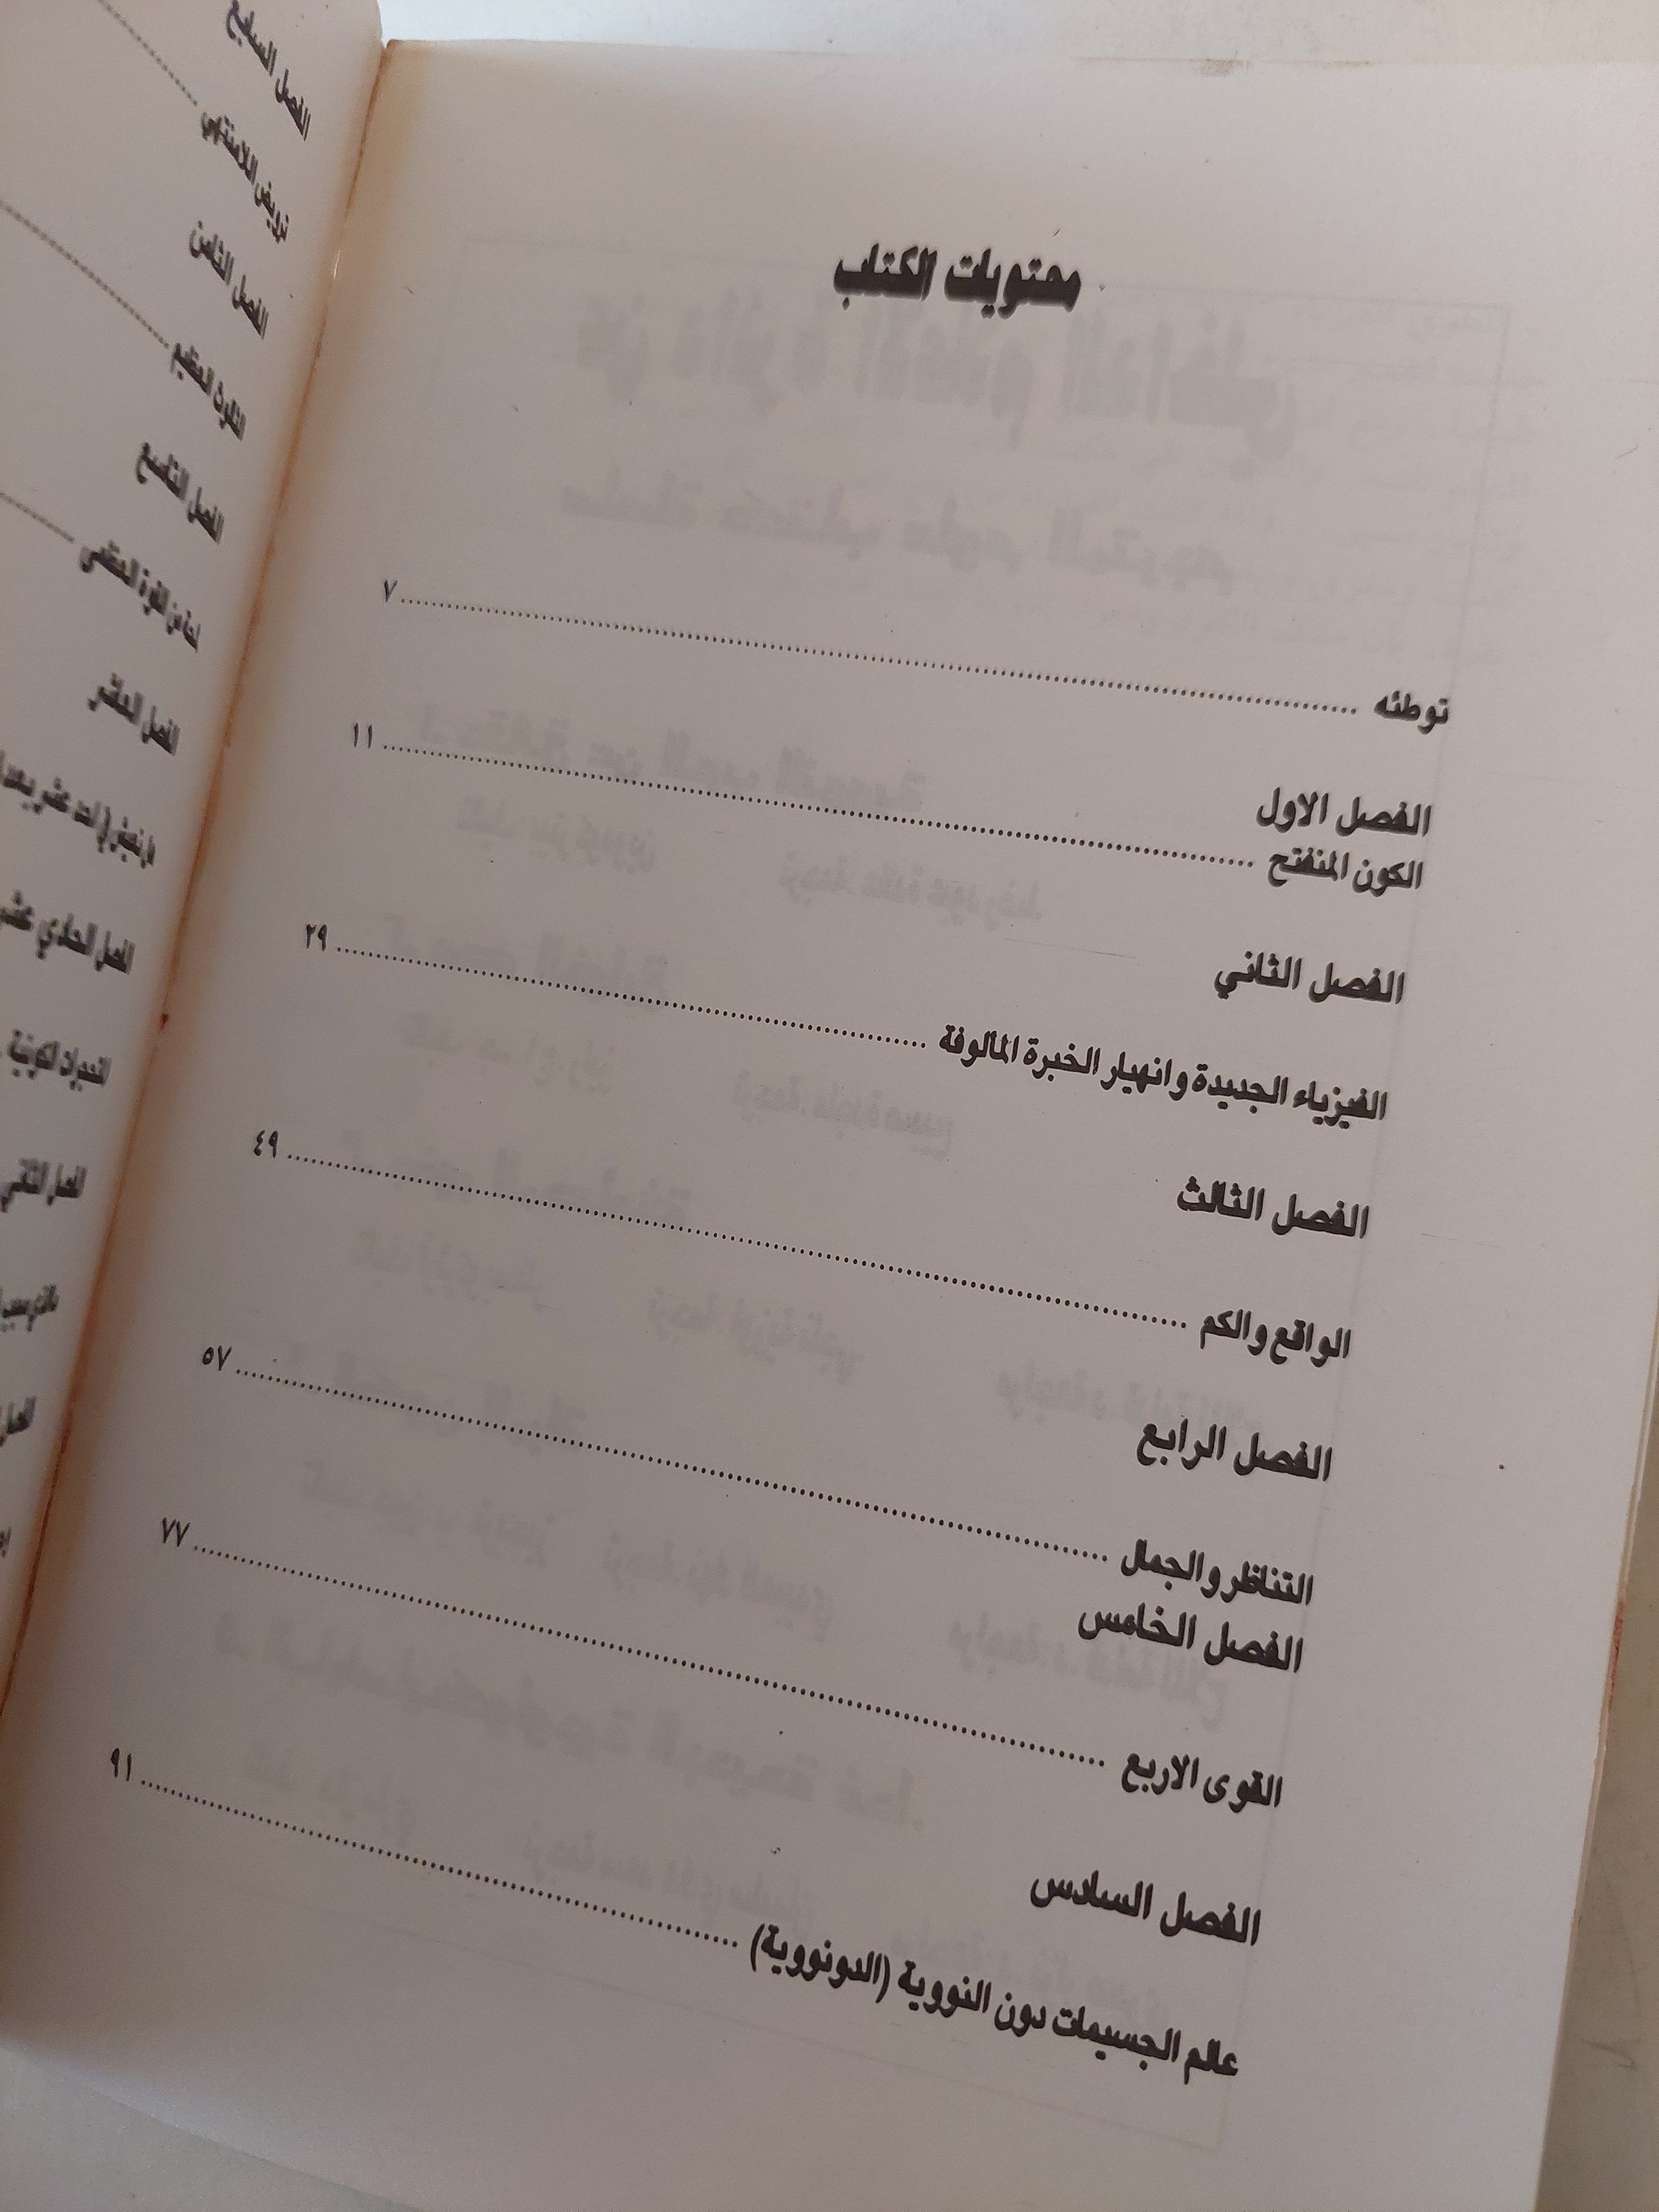 محتويات الكتاب
توطئه ........ ٧
الفصل الاول
الكون المنفتح ........ ١١
الفصل الثاني
الفيزياء الجديدة وانهيار الخبرة المألوفة ........ ٢٩
الفصل الثالث
الواقع والكم ........ ٤٩
الفصل الرابع
التناظر والجمال ........ ٥٧
الفصل الخامس
القوى الاربع ........ ٧٧
الفصل السادس
عالم الجسيمات دون النووية (الدونووية) ........ ٩١
الفصل السابع
ترويض اللامنتهي
الفصل الثامن
الثالوث العظيم
الفصل التاسع
لمحة من القوة العظمى
الفصل العاشر
الفصل الحادي عشر
الفصل الثاني